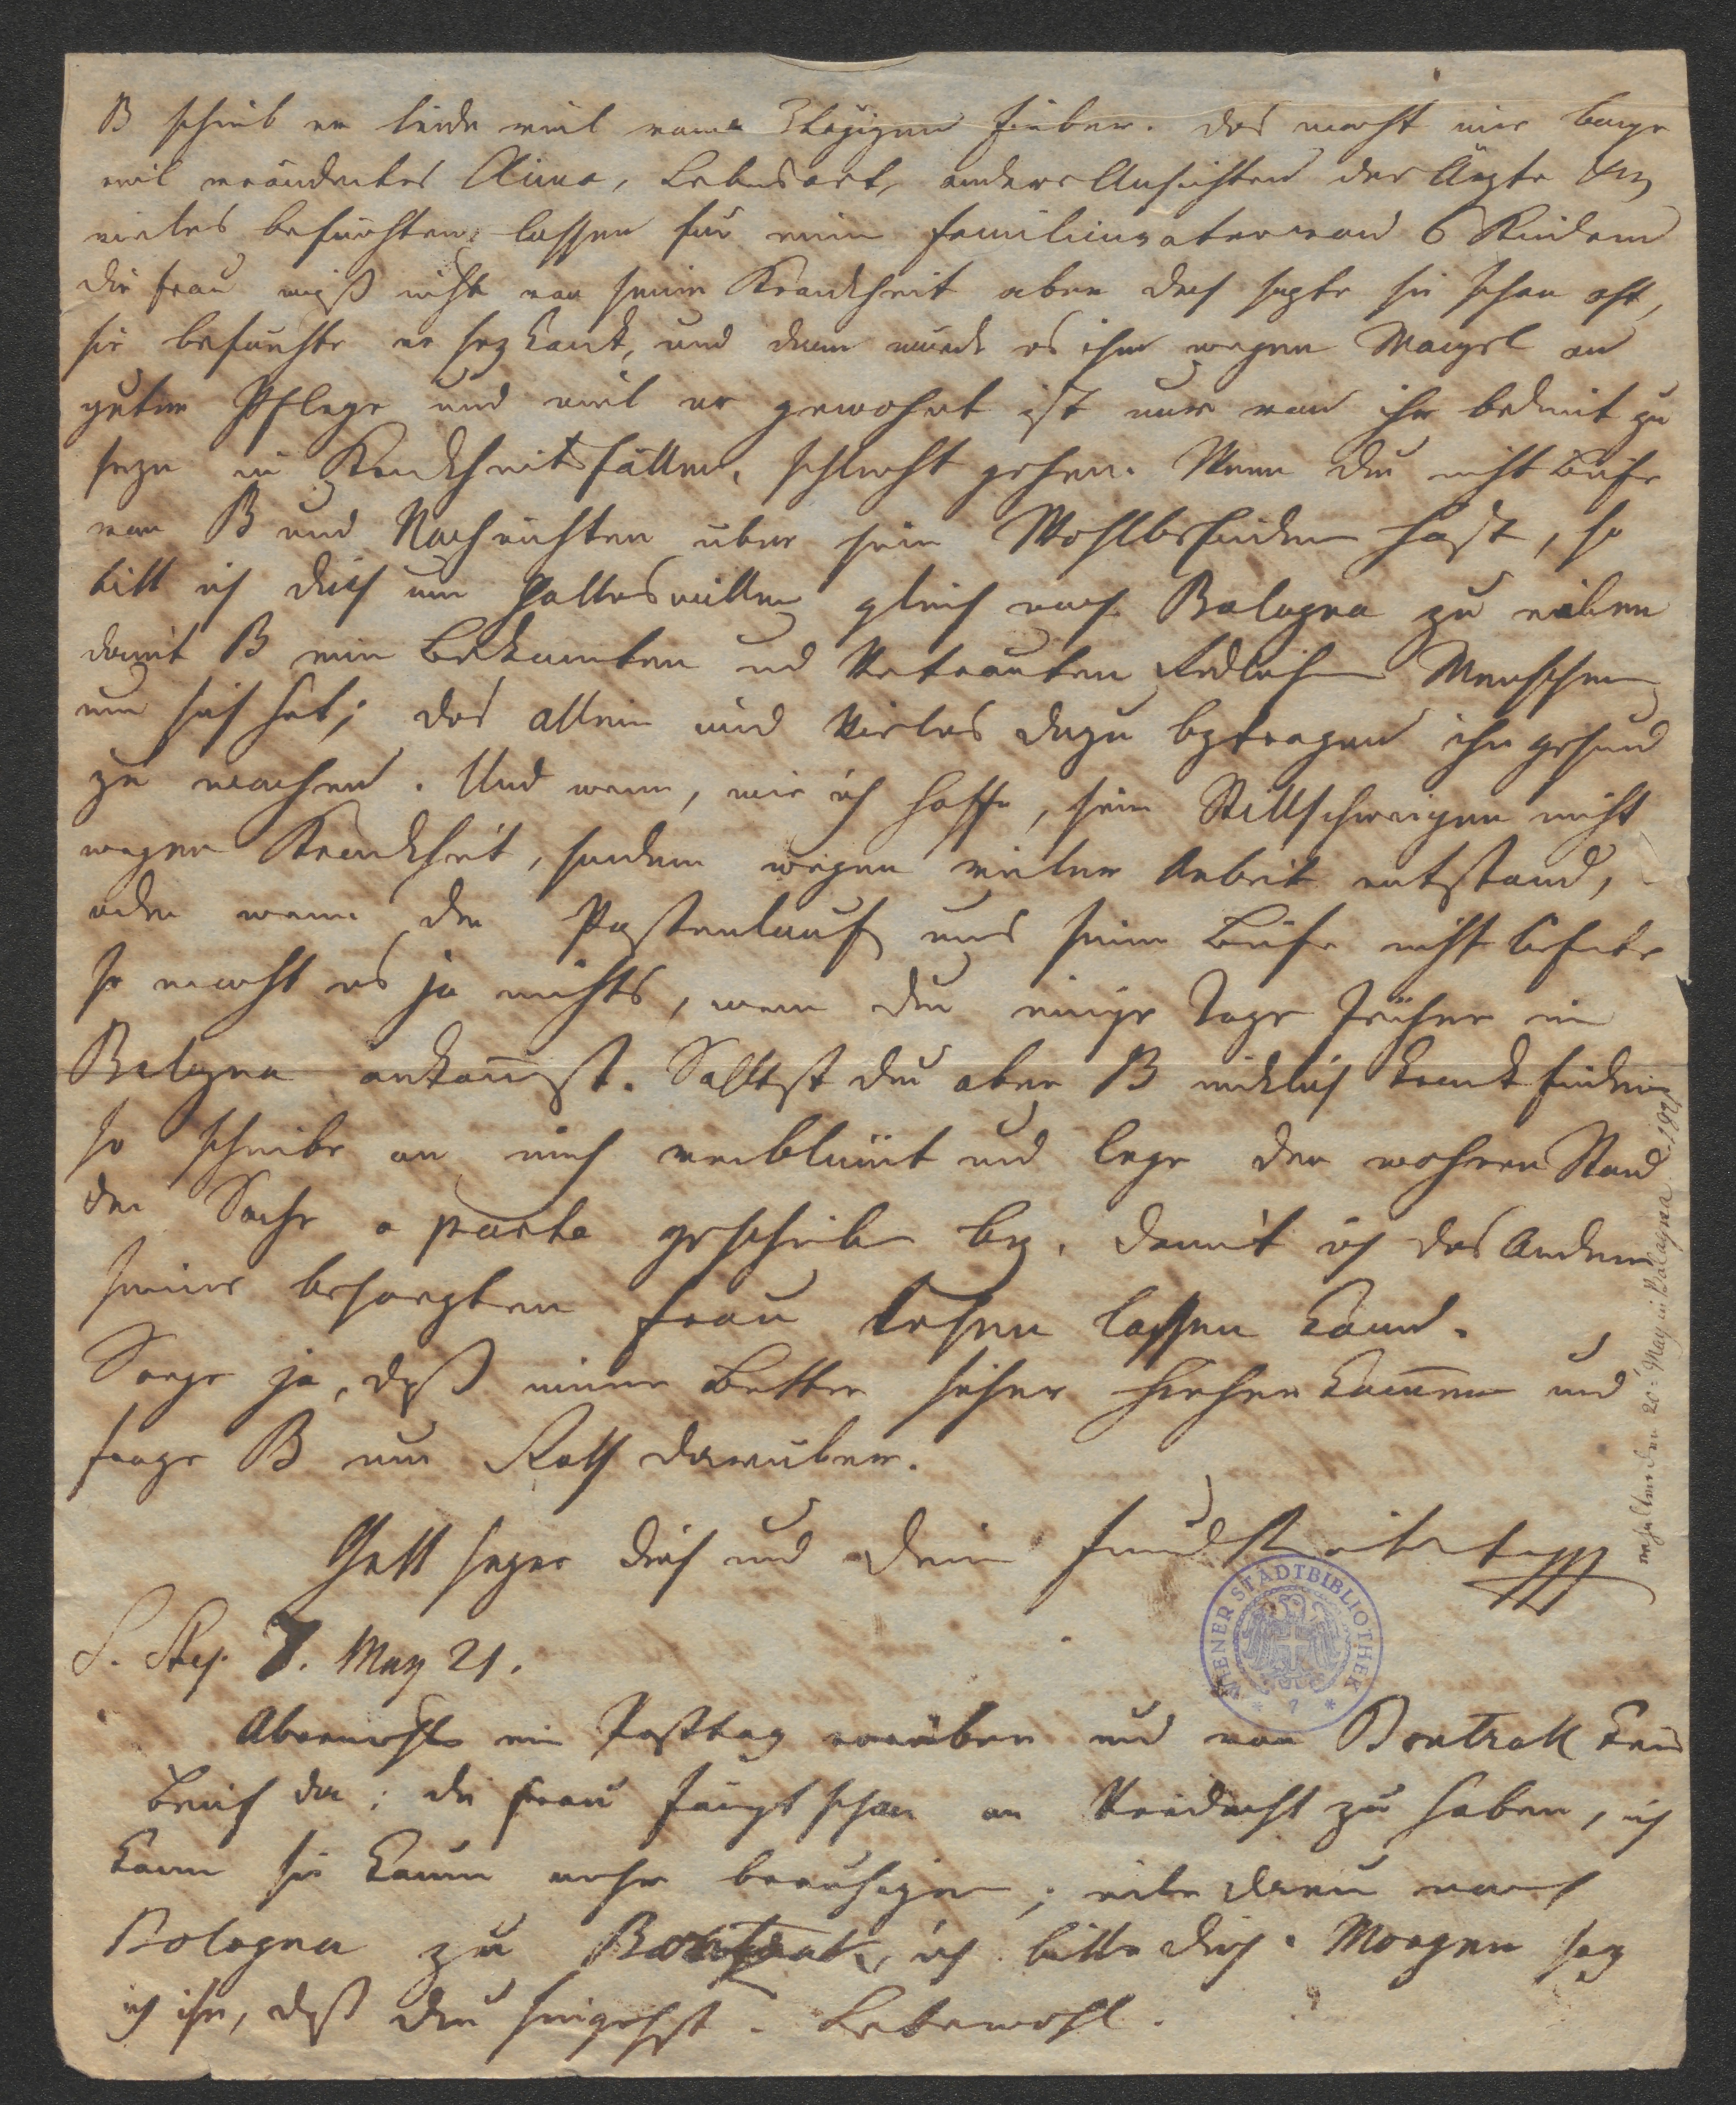 B schrieb er leide viel vom 3tägigen Fieber. Das macht mir bange
weil verändertes Clima, Lebensart, andere Ansichten der Ärzte etc
vieles befürchten lassen für einen Familienvater von 6 Kindern
die Frau weiß nichts von seiner Krankheit aber doch sagte sie schon oft,
sie befürchte er sey krank, und dann würde es ihm wegen Mangel an
guter Pflege und weil er gewohnt ist nur von ihr bedient zu
seyn in Krankheitsfällen, schlecht gehen. Wenn du nicht Briefe
von B und Nachrichten über sein Wohlbefinden hast, so
bitt ich dich um Gotteswillen gleich nach Bologna zu eilen
damit B einen Bekannten und Vertrauten Redlichen Menschen
um sich hat; das allein wird Vieles dazu beytragen ihn gesund
zu machen. Und wenn, wie ich hoffe, sein Stillschweigen nicht
wegen Krankheit, sondern wegen vieler Arbeit entstand,
oder wenn der Postenlauf uns seine Briefe nicht lieferte
so macht es ja nichts, wenn du einige Tage früher in
Bologna ankommst. Solltest du aber B wirklich krank finden
so schreibe an mich verblümt und lege den wahren Stand
der Sache a parte geschrieben bey, damit ich das Andere
seiner besorgten Frau lesen lassen kann.
Sorge ja, daß meine Better sicher hieher kommen und
frage B um Rath darüber.
Gott segne dich und deinen Freund
7. May 21.
Abermahls ein Posttag vorüber und von Bontrak kein
Brief da; die Frau fängt schon an Verdacht zu haben, ich
kann sie kaum mehr beruhigen; eile drum nach
Bologna zu Bontrak, ich bitte dich. Morgen sag
ich ihr, daß du hingehst. Lebewohl.
erhalten den 20: May in Bologna. 1821
WIENER STADTBIBLIOTHEK
* 7 *